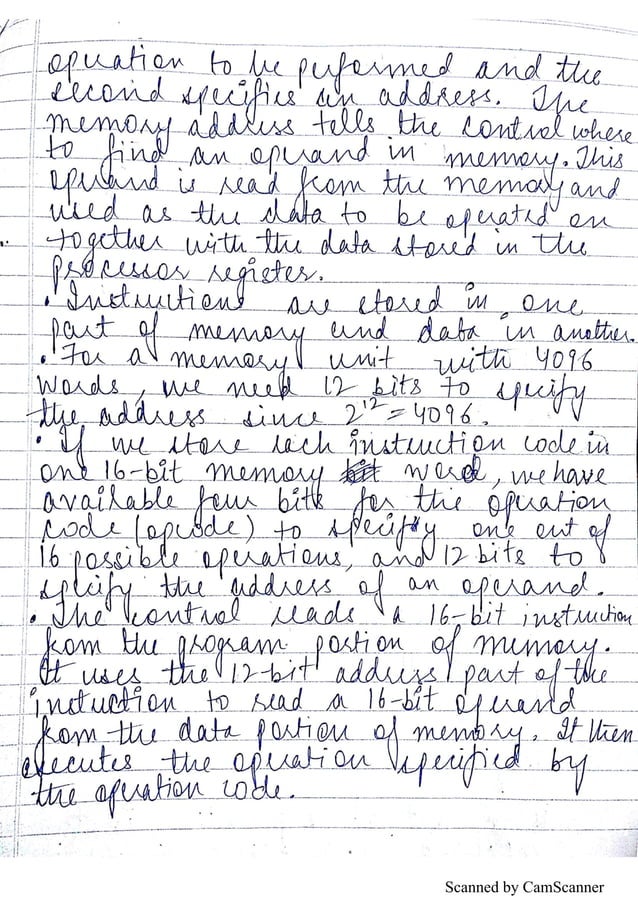 operation to be performed and the
second specifies an address. The
memory address tells the control where
to find an operand in memory. This
operand is read from the memory and
used as the data to be operated on
together with the data stored in the
processor register.
• Instructions are stored in one
part of memory and data in another.
• For a memory unit with 4096
Words, we need 12 bits to specify
the address since 2¹² = 4096.
• If we store each instruction code in
one 16-bit memory word, we have
available four bits for the operation
code (opcode) to specify one out of
16 possible operations, and 12 bits to
specify the address of an operand.
• The control reads a 16-bit instruction
from the program portion of memory.
It uses the 12-bit address part of the
instruction to read a 16-bit operand
from the data portion of memory. It then
executes the operation specified by
the operation code.
Scanned by CamScanner